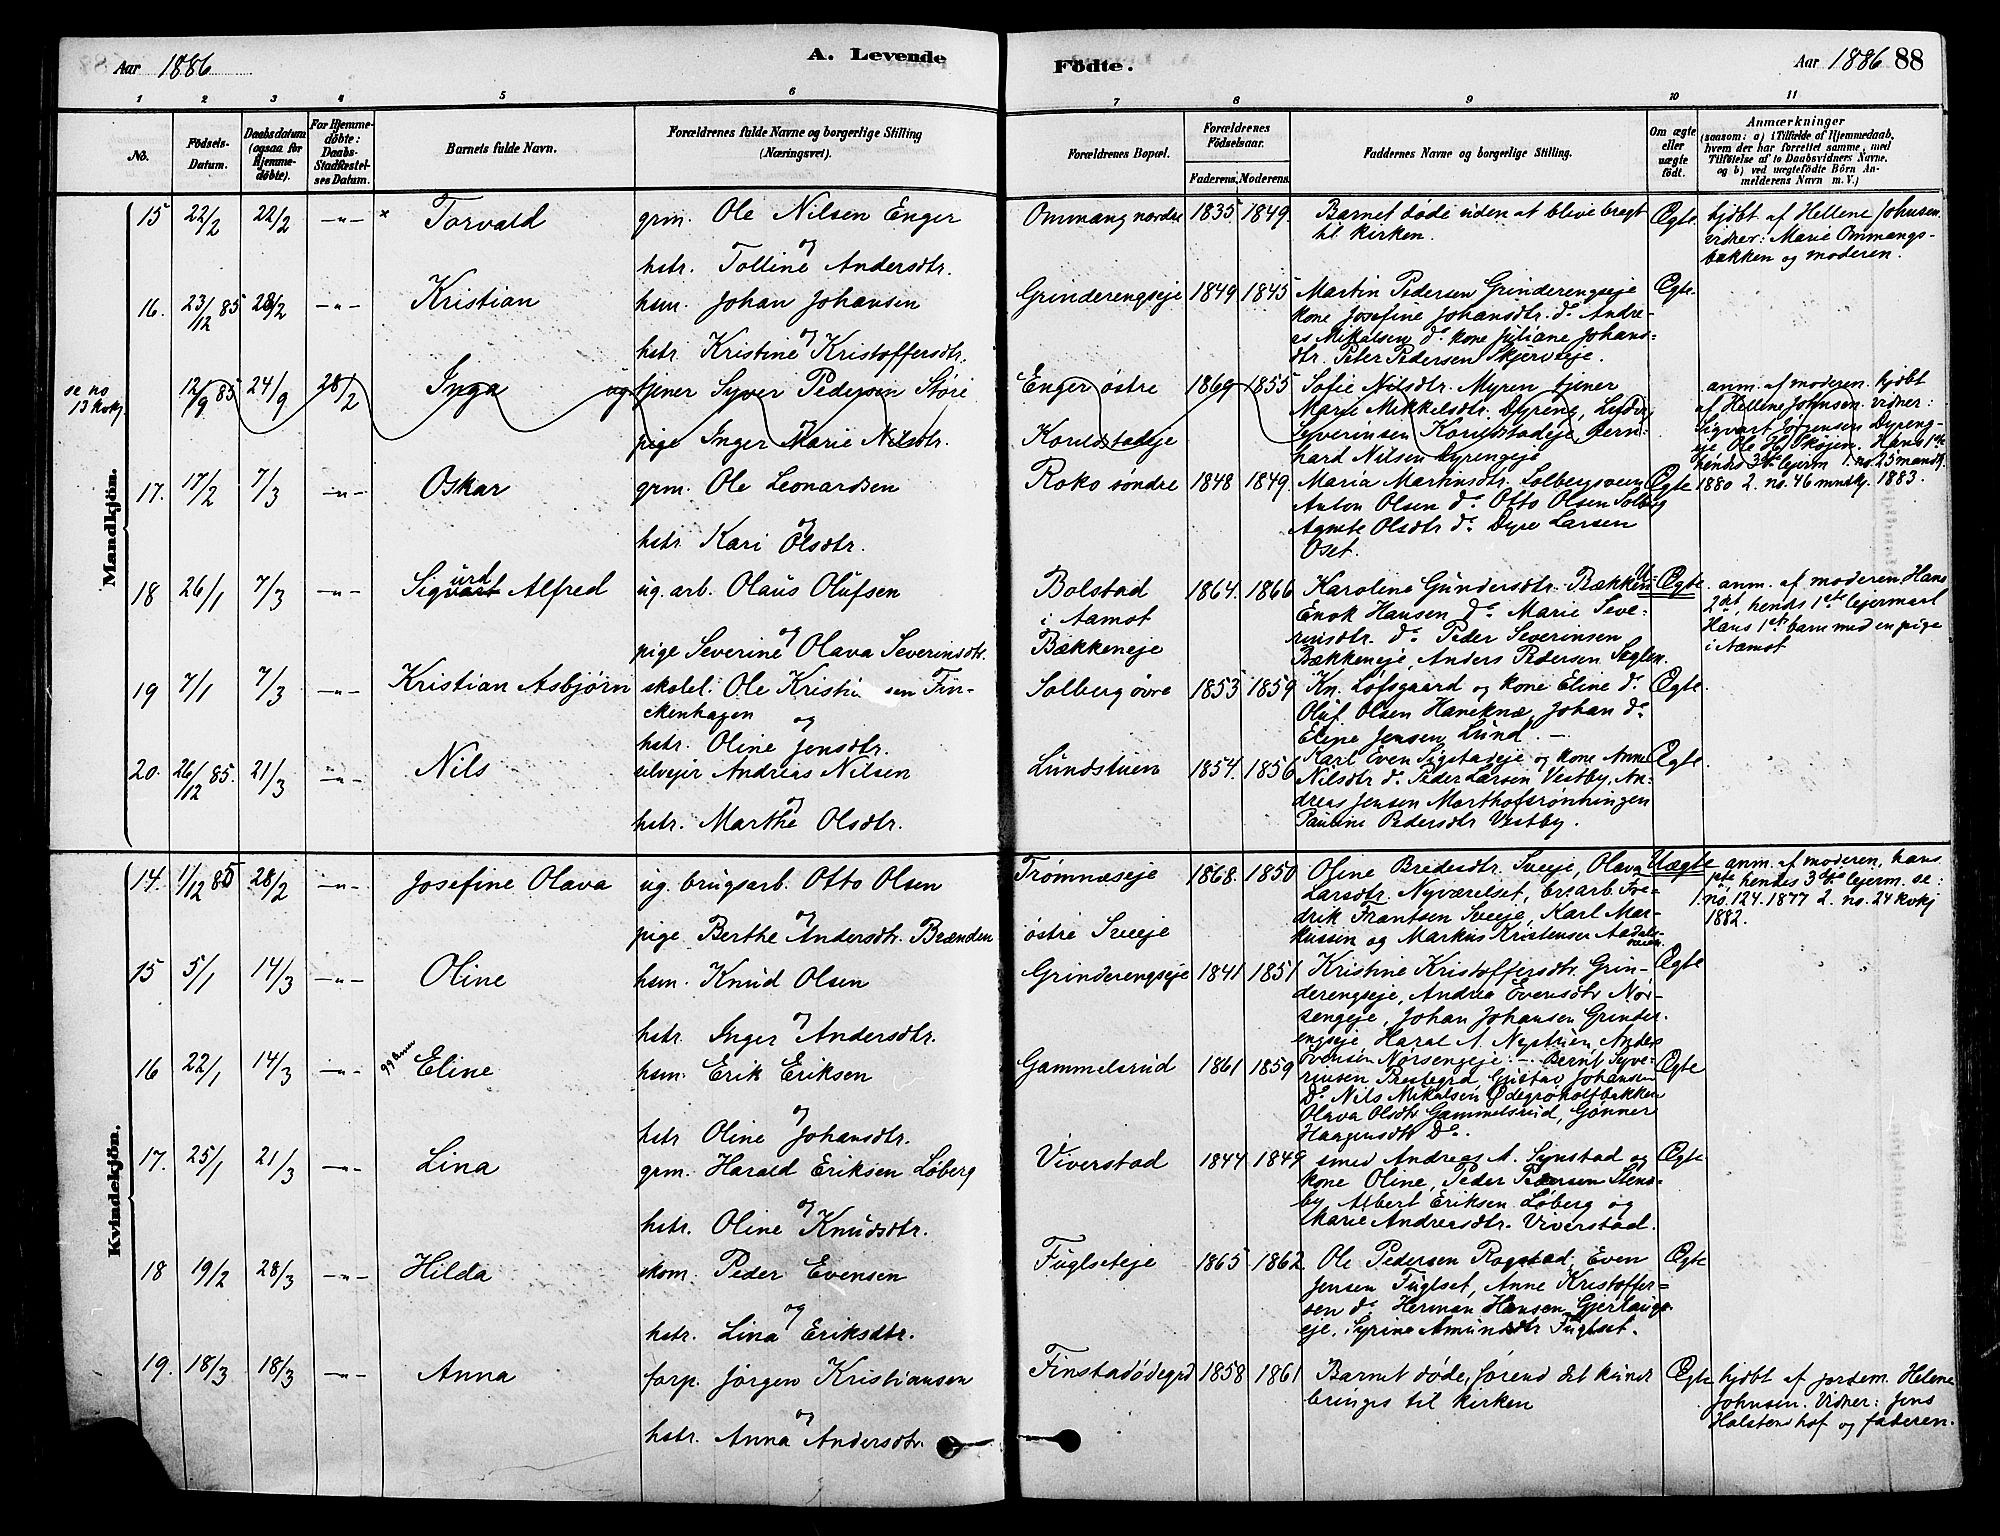 Aar 1886
A. Levende
Födte.
Aar 1886 88
1 2 3 4 5 6 7 8 9 10 11
No.
Födsels-
Datum.
Daabsdatum
(ogsaa for
Hjemme-
døbte).
For Hjemme-
døbte:
Daabs-
Stadfæstel-
ses Datum.
Barnets fulde Navn.
Forældrenes fulde Navne og borgerlige Stilling
(Næringsvei).
Forældrenes Bopæl.
Forældrenes
Födselsaar.
Faderens. Moderens.
Faddernes Navne og borgerlige Stilling.
Om ægte
eller
uægte
født.
Anmærkninger
(saasom: a) i Tilfælde af Hjemmedaab,
hvem der har forrettet samme, med
Tilföielse af to Daabsvidners Navne,
og b) ved uægtefödte Börn An-
melderens Navn m. V.)
Mandkjön.
15 22/2 22/2 -"- × Torvald
grm. Ole Nilsen Enger
og
hstr. Tolline Andersdtr.
Ommang nordre 1835. 1849.
Barnet døde uden at blive bragt
til kirken.
Ægte
hjdbt af Hellene Johnsen.
vidner: Marie Ommangs-
bakken og moderen.
16. 23/12 85 28/2 -"- Kristian
hsm. Johan Johansen
og
hstr. Kristine Kristoffersdtr.
Grinderengseje 1849 1845
Martin Pedersen Grinderengseje
kone Josefine Johansdtr. do Andre-
as Mikalsen do kone Juliane Johans-
dtr. Peter Pedersen Skjerveje.
Ægte.
se no
13 kvkj.
12/9 85 24/9 28/2 Inga
tjener Syver Pedersen Støri
og
pige Inger Marie Nilsdtr.
Enger østre 1869 1855
Koruldstadeje
Sofie Nilsdtr. Myren tjener
Marie Mikkelsdtr. Dyreng, Ludvig
Syverinsen Koruldstadeje Bern-
hard Nilsen Dyrengeje
anm. af moderen. hjdbt
af Hellene Johnsen. vidner:
Sigvart Jørgensen Dyreng-
eje Ole H. Skøjen. Hans 1ste
hendes 3die lejerm 1. no. 25 mandkj.
1880 2. no. 46 mndkj. 1883.
17. 17/2 7/3 -"- Oskar
grm. Ole Leonardsen
og
hstr. Kari Olsdtr.
Roko søndre 1848 1849.
Maria Martinsdtr. Solbergsveen
Anton Olsen do Otto Olsen Solberg
Agnete Olsdtr do Dyre Larsen
Oset.
Ægte
18 26/1 7/3 -"- Sigurd Alfred
ug. arb. Olaus Olufsen
og
pige Severine Olava Severinsdtr.
Bolstad
i Aamot
Bækkeneje
1864. 1866
Karoline Gundersdtr. Bækken
Enok Hansen do Marie Seve-
rinsdtr. do Peder Severinsen
Bækkeneje, Anders Pedersen Sæglen.
U-Ægte
anm. af moderen. Hans
2det, hends 1ste lejermaal
Hans 1ste barn med en pige
i Aamot
19 7/1 7/3 -"- Kristian Asbjørn
skolel. Ole Kristiansen Fin-
ckenhagen
og
hstr. Oline Jensdtr.
Solberg øvre 1853 1859
Kn. Løfsgaard og kone Eline do
Oluf Olsen Haneknæ, Johan do
Eline Jensen Lund. -
Ægte.
20. 26/12 85. 21/3 -"- Nils
selvejer Andreas Nilsen
og
hstr. Marthe Olsdtr.
Lundstuen 1854. 1856
Karl Even Sigstadeje og kone Anne
Nilsdtr do Peder Larsen Vestby, An-
dreas Jensen Marthofsrønningen
Pauline Pedersdtr Vestby.
Ægte
Kvindekjön.
14. 1/12 85 28/2 -"- Josefine Olava
ug. brugsarb. Otto Olsen
og
pige Berthe Andersdtr. Brænden
Trømnæseje
østre Sveeje
1868. 1850
Oline Bredesdtr. Sveeje, Olava
Larsdtr. Nyværelset, br. arb. Fre-
drik Frantsen Sveeje, Karl Mar-
kussen og Markus Kristensen Aadals-
veien.
Uægte
anm. af moderen, hans
1ste hendes 3die lejerm. se:
1. no. 124. 1877 2. no. 24 kvkj
1882.
15 5/1 14/3 -"- Oline
hsm. Knud Olsen
og
hstr. Inger Andersdtr.
Grinderengseje 1841 1851
Kristine Kristoffersdtr. Grin-
derengseje, Andrea Evensdtr Nør-
sengeje, Johan Johansen Grinder-
engseje Haral A. Nystuen, Anders
Evensen Nørsengeje. -
Ægte
16 22/1 14/3 -"- Eline
hsm. Erik Eriksen
og
hstr. Oline Johansdtr.
Gammelsrud 1861 1859
Bernt Syve-
rinsen Prestegrd, Gustav Johansen
Do Nils Mikalsen Ødegrokolfbakken
Olava Olsdtr Gammelsrud, Gønner
Haagensdtr Do.
Ægte
17. 25/1 21/3 -"- Lina
grm. Harald Eriksen Løberg
og
hstr. Oline Knudsdtr.
Viverstad 1844 1849
smed Andreas A. Synstad og
kone Oline, Peder Pedersen Stens-
by Albert Eriksen Løberg og
Marie Andersdtr. Viverstad.
Ægte
18 19/2 28/3 -"- Hilda
skom. Peder Evensen
og
hstr. Lina Eriksdtr.
Fuglseteje 1865 1862
Ole Pedersen Rogstad, Even
Jensen Fuglset, Anne Kristoffer-
sen do Herman Hansen Gjerlaugs-
eje, Syrine Amundsdtr Fuglset.
Ægte
19. 18/3 18/3 -"- Anna
forp. Jørgen Kristiansen
og
hstr. Anna Andersdtr.
Finstadødegrd 1858 1861
Barnet døde, førend det kunde
bringes til kirken
Ægte
hjdbt af jordem. Helene
Johnsen. Vidner: Jens
Halstenshof og faderen.